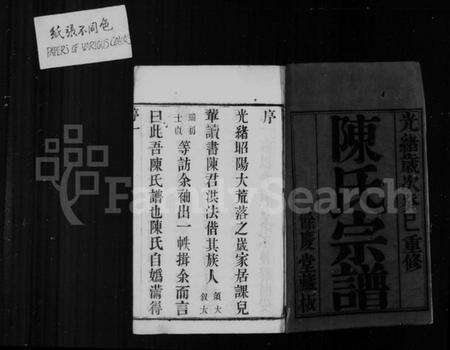 紙張不同色
PAPERS OF VARIOUS COLOR
序
光緒昭陽大荒落之歲家居課兒
輩讀書陳君洪法偕其族人
等訪余袖出一帙揖余而言
曰此吾陳氏譜也陳氏自媯滿得
序一
光緒歲次癸巳重修
陳氏宗譜
餘慶堂藏板
FamilySearch